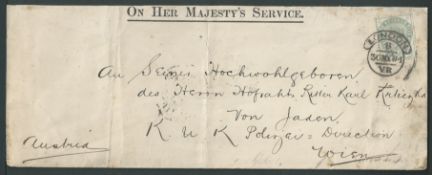 ON HER MAJESTY'S SERVICE.
LONDON
8
VR
An Seine Hochwohlgeboren
des Herrn Hofraths Ritter Karl
Von Jaden
K. u K Polizei = Direction
Wien
Austria